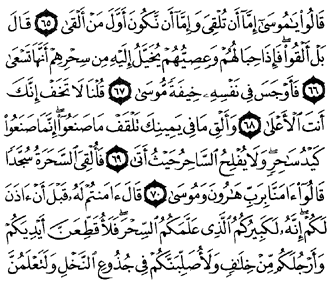 قَالُوا۟ يَٰمُوسَىٰٓ إِمَّآ أَن تُلْقِىَ وَإِمَّآ أَن نَّكُونَ أَوَّلَ مَنْ أَلْقَىٰ ٦٥ قَالَ
بَلْ أَلْقُوا۟ ۖ فَإِذَا حِبَالُهُمْ وَعِصِيُّهُمْ يُخَيَّلُ إِلَيْهِ مِن سِحْرِهِمْ أَنَّهَا تَسْعَىٰ
٦٦ فَأَوْجَسَ فِى نَفْسِهِۦ خِيفَةً مُّوسَىٰ ٦٧ قُلْنَا لَا تَخَفْ إِنَّكَ
أَنتَ ٱلْأَعْلَىٰ ٦٨ وَأَلْقِ مَا فِى يَمِينِكَ تَلْقَفْ مَا صَنَعُوٓا۟ ۖ إِنَّمَا صَنَعُوا۟
كَيْدُ سَٰحِرٍ ۖ وَلَا يُفْلِحُ ٱلسَّاحِرُ حَيْثُ أَتَىٰ ٦٩ فَأُلْقِىَ ٱلسَّحَرَةُ سُجَّدًا
قَالُوٓا۟ ءَامَنَّا بِرَبِّ هَٰرُونَ وَمُوسَىٰ ٧٠ قَالَ ءَامَنتُمْ لَهُۥ قَبْلَ أَنْ ءَاذَنَ
لَكُمْ ۖ إِنَّهُۥ لَكَبِيرُكُمُ ٱلَّذِى عَلَّمَكُمُ ٱلسِّحْرَ ۖ فَلَأُقَطِّعَنَّ أَيْدِيَكُمْ
وَأَرْجُلَكُم مِّنْ خِلَٰفٍ وَلَأُصَلِّبَنَّكُمْ فِى جُذُوعِ ٱلنَّخْلِ وَلَتَعْلَمُنَّ